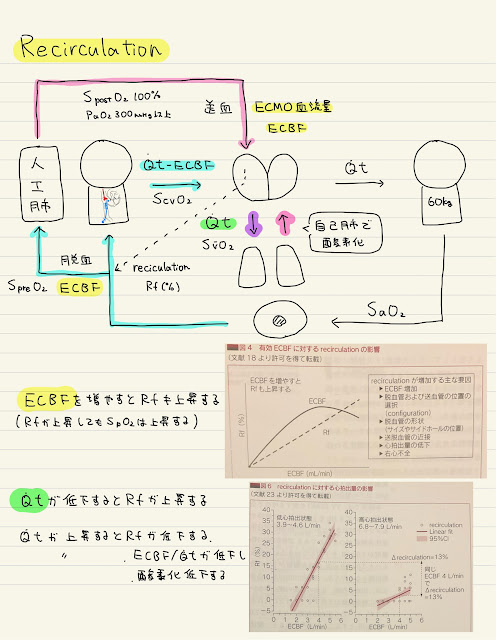 Recirculation
SpostO2 100%
PaO2 300mmHg以上
送血
ECMO血流量
ECBF
人工肺
Qt-ECBF
ScvO2
Qt
60kg
Qt
Sv̄O2
自己肺で
酸素化
脱血
SpreO2 ECBF
reciculation
Rf(%)
SaO2
ECBFを増やすとRfも上昇する
(Rfが上昇してもSpO2は上昇する)
図4 有効ECBFに対するrecirculationの影響
(文献18より許可を得て転載)
ECBFを増やすと
Rfも上昇する
ECBF
Rf
Rf (%)
ECBF (mL/min)
recirculationが増加する主な要因
▶ECBF増加
▶脱血管および送血管の位置の
選択
(configuration)
▶脱血管の形状
(サイズやサイドホールの位置)
▶送脱血管の近接
▶心拍出量の低下
▶右心不全
Qtが低下するとRfが上昇する
Qtが上昇するとRfが低下する.
〃 .ECBF/Qtが低下し
.酸素化低下する
図6 recirculationに対する心拍出量の影響
(文献23より許可を得て転載)
低心拍出状態
3.9~4.6L/min
高心拍出状態
6.8~7.9L/min
recirculation
Linear fit
95%CI
Δrecirculation=13%
同じ
ECBF 4 L/min
で
Δrecirculation
=13%
Rf (%)
40
35
30
25
20
15
10
5
0
-5
0 1 2 3 4 5 6
ECBF (L/min)
40
35
30
25
20
15
10
5
0
-5
0 1 2 3 4 5 6
ECBF (L/min)